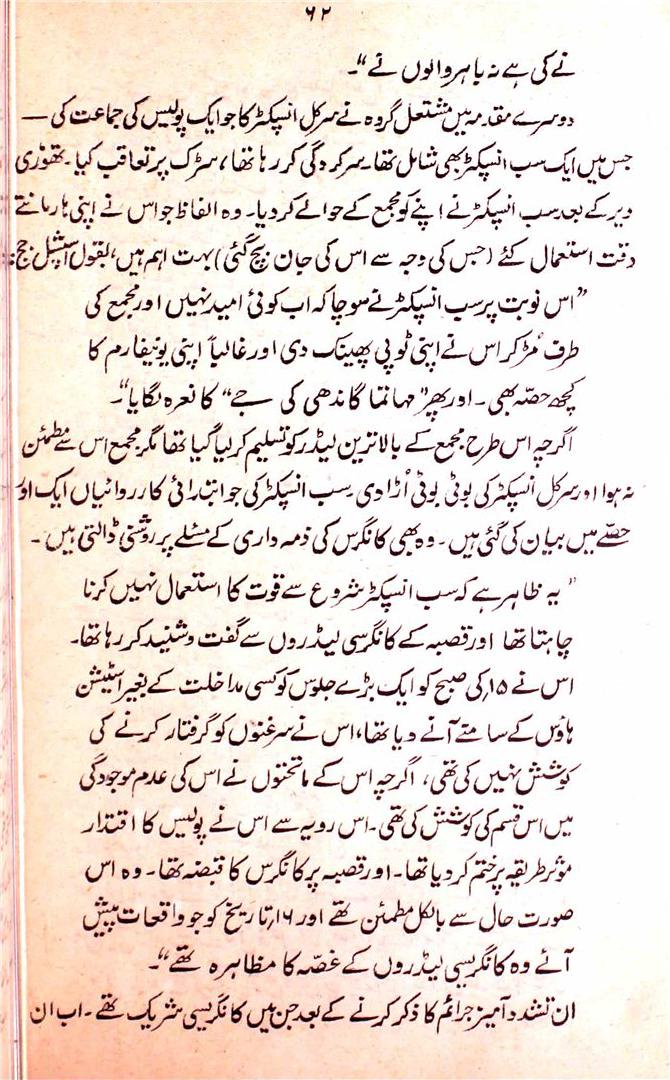 ۶۲
نے کی ہے نہ باہر والوں نے“۔
دوسرے مقدمہ میں مشتعل گروہ نے سرکل انسپکٹر کا جو ایک پولیس کی جماعت کی —
جس میں ایک سب انسپکٹر بھی شامل تھا۔ سرکردگی کر رہا تھا، سڑک پر تعاقب کیا۔ تھوڑی
دیر کے بعد سب انسپکٹر نے اپنے کو مجمع کے حوالے کر دیا۔ وہ الفاظ جو اس نے اپنی ہار مانتے
وقت استعمال کئے (جس کی وجہ سے اس کی جان بچ گئی) بہت اہم ہیں، بقول اسپیشل جج:
”اس نوبت پر سب انسپکٹر نے سوچا کہ اب کوئی امید نہیں اور مجمع کی
طرف مُڑ کر اس نے اپنی ٹوپی پھینک دی اور غالباً اپنی یونیفارم کا
کچھ حصّہ بھی۔ اور پھر ”مہاتما گاندھی کی جے“ کا نعرہ لگایا“۔
اگرچہ اس طرح مجمع کے بالاترین لیڈر کو تسلیم کر لیا گیا تھا مگر مجمع اس سے مطمئن
نہ ہوا اور سرکل انسپکٹر کی بوٹی بوٹی اُڑا دی۔ سب انسپکٹر کی جو ابتدائی کارروائیاں ایک اور
حصّے میں بیان کی گئی ہیں۔ وہ بھی کانگرس کی ذمہ داری کے مسئلے پر روشنی ڈالتی ہیں۔
”یہ ظاہر ہے کہ سب انسپکٹر شروع سے قوت کا استعمال نہیں کرنا
چاہتا تھا اور قصبہ کے کانگرسی لیڈروں سے گفت و شنید کر رہا تھا۔
اس نے ۱۵؍کی صبح کو ایک بڑے جلوس کو کسی مداخلت کے بغیر اسٹیشن
ہاؤس کے سامنے آنے دیا تھا، اس نے سرغنوں کو گرفتار کرنے کی
کوشش نہیں کی تھی، اگرچہ اس کے ماتحتوں نے اس کی عدم موجودگی
میں اس قسم کی کوشش کی تھی۔ اس رویہ سے اس نے پولیس کا اقتدار
مؤثر طریقہ پر ختم کر دیا تھا۔ اور قصبہ پر کانگرس کا قبضہ تھا۔ وہ اس
صورت حال سے بالکل مطمئن تھے اور ۱۶؍تاریخ کو جو واقعات پیش
آئے وہ کانگریسی لیڈروں کے غصّہ کا مظاہرہ تھے“۔
ان تشدد آمیز جرائم کا ذکر کرنے کے بعد جن میں کانگریسی شریک تھے۔ اب ان